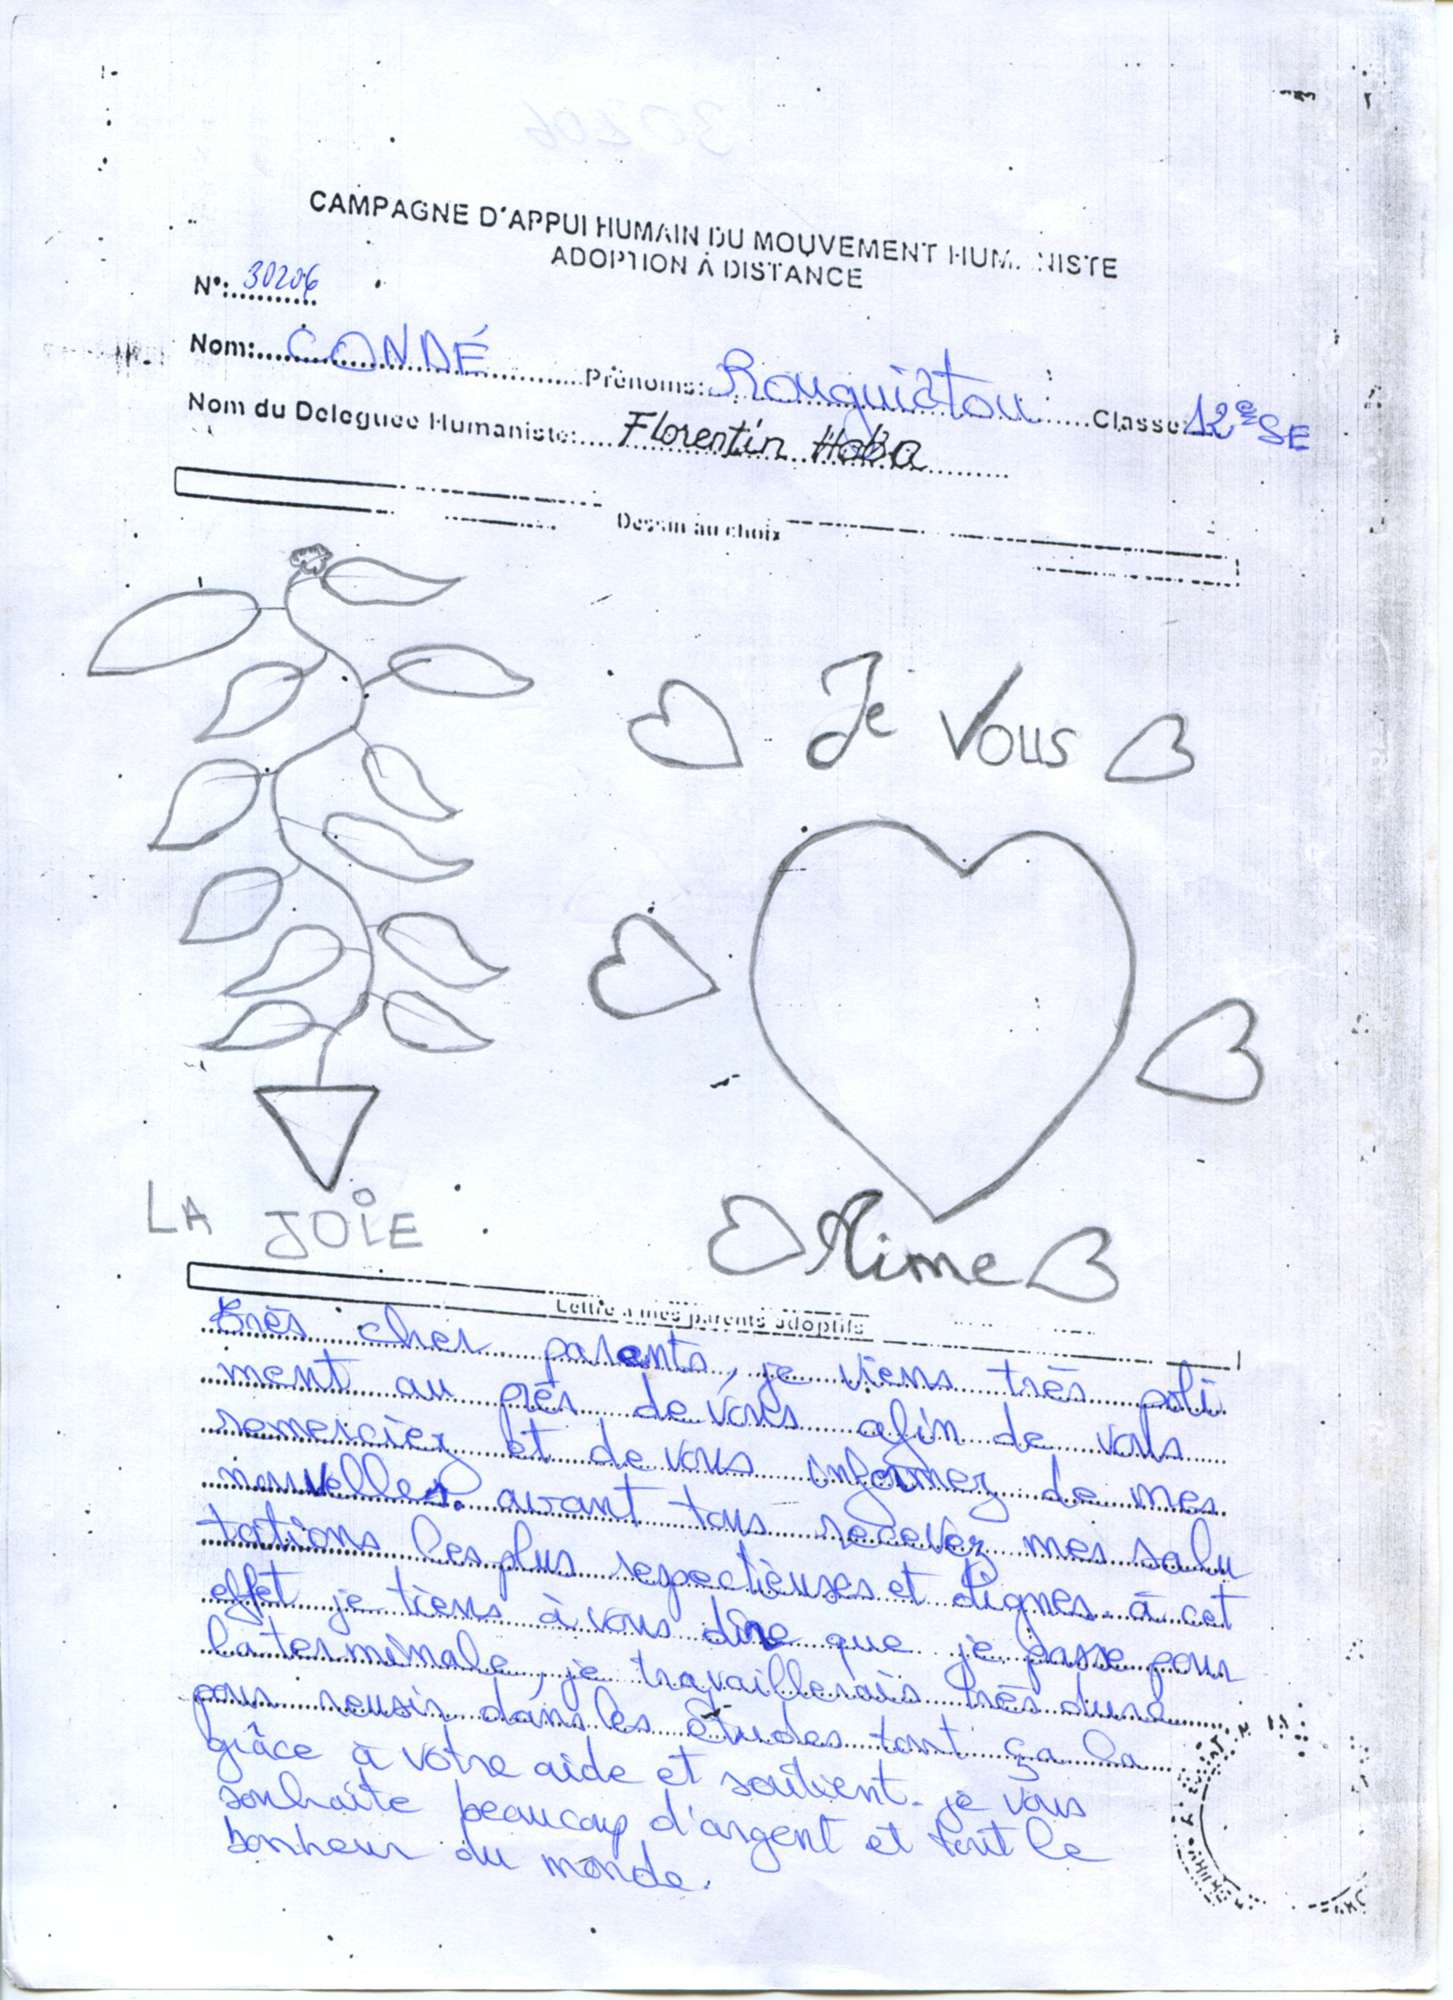 CAMPAGNE D'APPUI HUMAIN DU MOUVEMENT HUMANISTE
ADOPTION À DISTANCE
N°: 30206
Nom: CONDÉ Prénoms: Rouguiatou Classe: 12e SE
Nom du Deleguée Humaniste: Florentin Haba
Dessin au choix
Je Vous
Aime
LA JOIE
Lettre à mes parents adoptifs
très cher parents, je viens très poli
ment au près de vous afin de vous
remercier et de vous informez de mes
nouvelles. avant tous recevez mes salu
tations les plus respectieuses et dignes. à cet
effet je tiens à vous dire que je passe pour
la terminale, je travaillerais très dure
pour reusir dans les études tout ça la
grâce à votre aide et soutient. je vous
souhaite beaucoup d'argent et tout le
bonheur du monde.